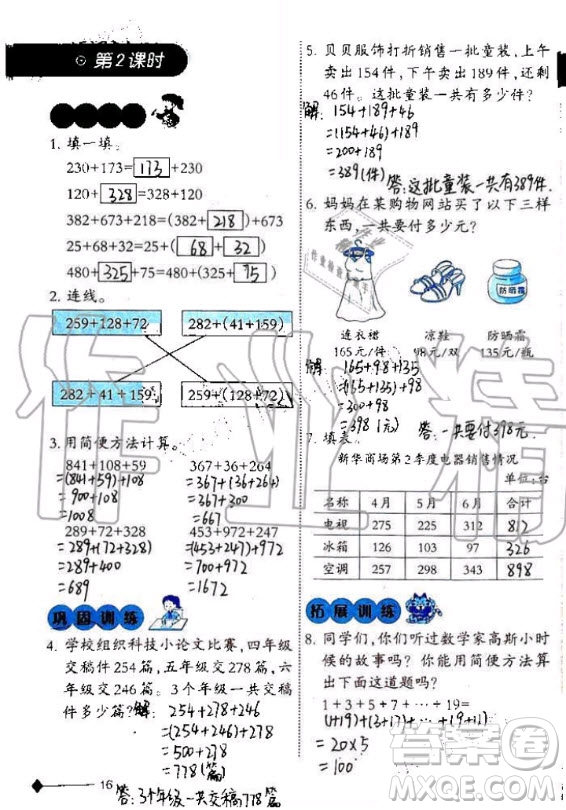 第2课时
1. 填一填。
230+173=173+230
120+328=328+120
382+673+218=(382+218)+673
25+68+32=25+(68+32)
480+325+75=480+(325+75)
2. 连线。
259+128+72 282+(41+159)
282+41+159 259+(128+72)
3. 用简便方法计算。
841+108+59 367+36+264
=(841+59)+108 =367+(36+264)
=900+108 =367+300
=1008 =667
289+72+328 453+972+247
=289+(72+328) =(453+247)+972
=289+400 =700+972
=689 =1672
巩固训练
4. 学校组织科技小论文比赛,四年级
交稿件254篇,五年级交278篇,六
年级交246篇。3个年级一共交稿
件多少篇?解: 254+278+246
=(254+246)+278
=500+278
=778(篇)
答:3个年级一共交稿778篇
16
5. 贝贝服饰打折销售一批童装,上午
卖出154件,下午卖出189件,还剩
46件。这批童装一共有多少件?
解: 154+189+46
=(154+46)+189
=200+189
=389(件)
答:这批童装一共有389件.
6. 妈妈在某购物网站买了以下三样
东西,一共要付多少元?
防晒霜
连衣裙 凉鞋 防晒霜
165元/件 98元/双 135元/瓶
解: 165+98+135
=(165+135)+98
=300+98
=398(元)
答:一共要付398元.
7. 填表。
新华商场第2季度电器销售情况
单位:台
名称 4月 5月 6月 合计
电视 275 225 312 812
冰箱 126 103 97 326
空调 257 298 343 898
拓展训练
8. 同学们,你们听过数学家高斯小时
候的故事吗?你能用简便方法算
出下面这道题吗?
1+3+5+7+…+19=
(1+19)+(3+17)+…+(9+11)
=20×5
=100
作业精灵